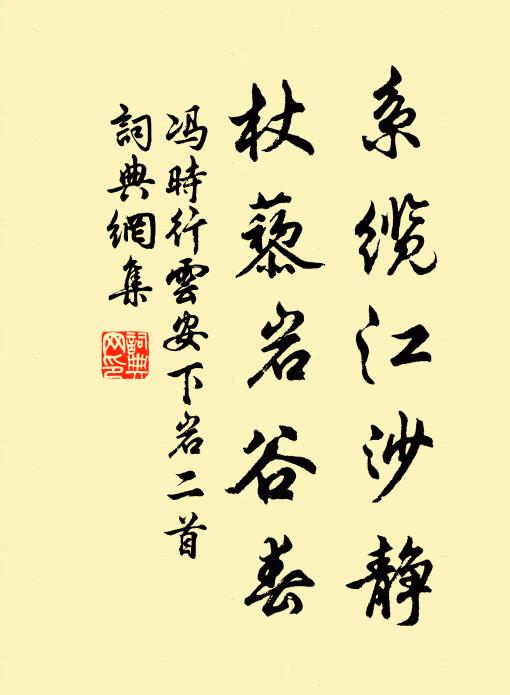 系缆江沙静
杖藜岩谷春
冯時行雲安下岩二首
詞典網集
詞典网印